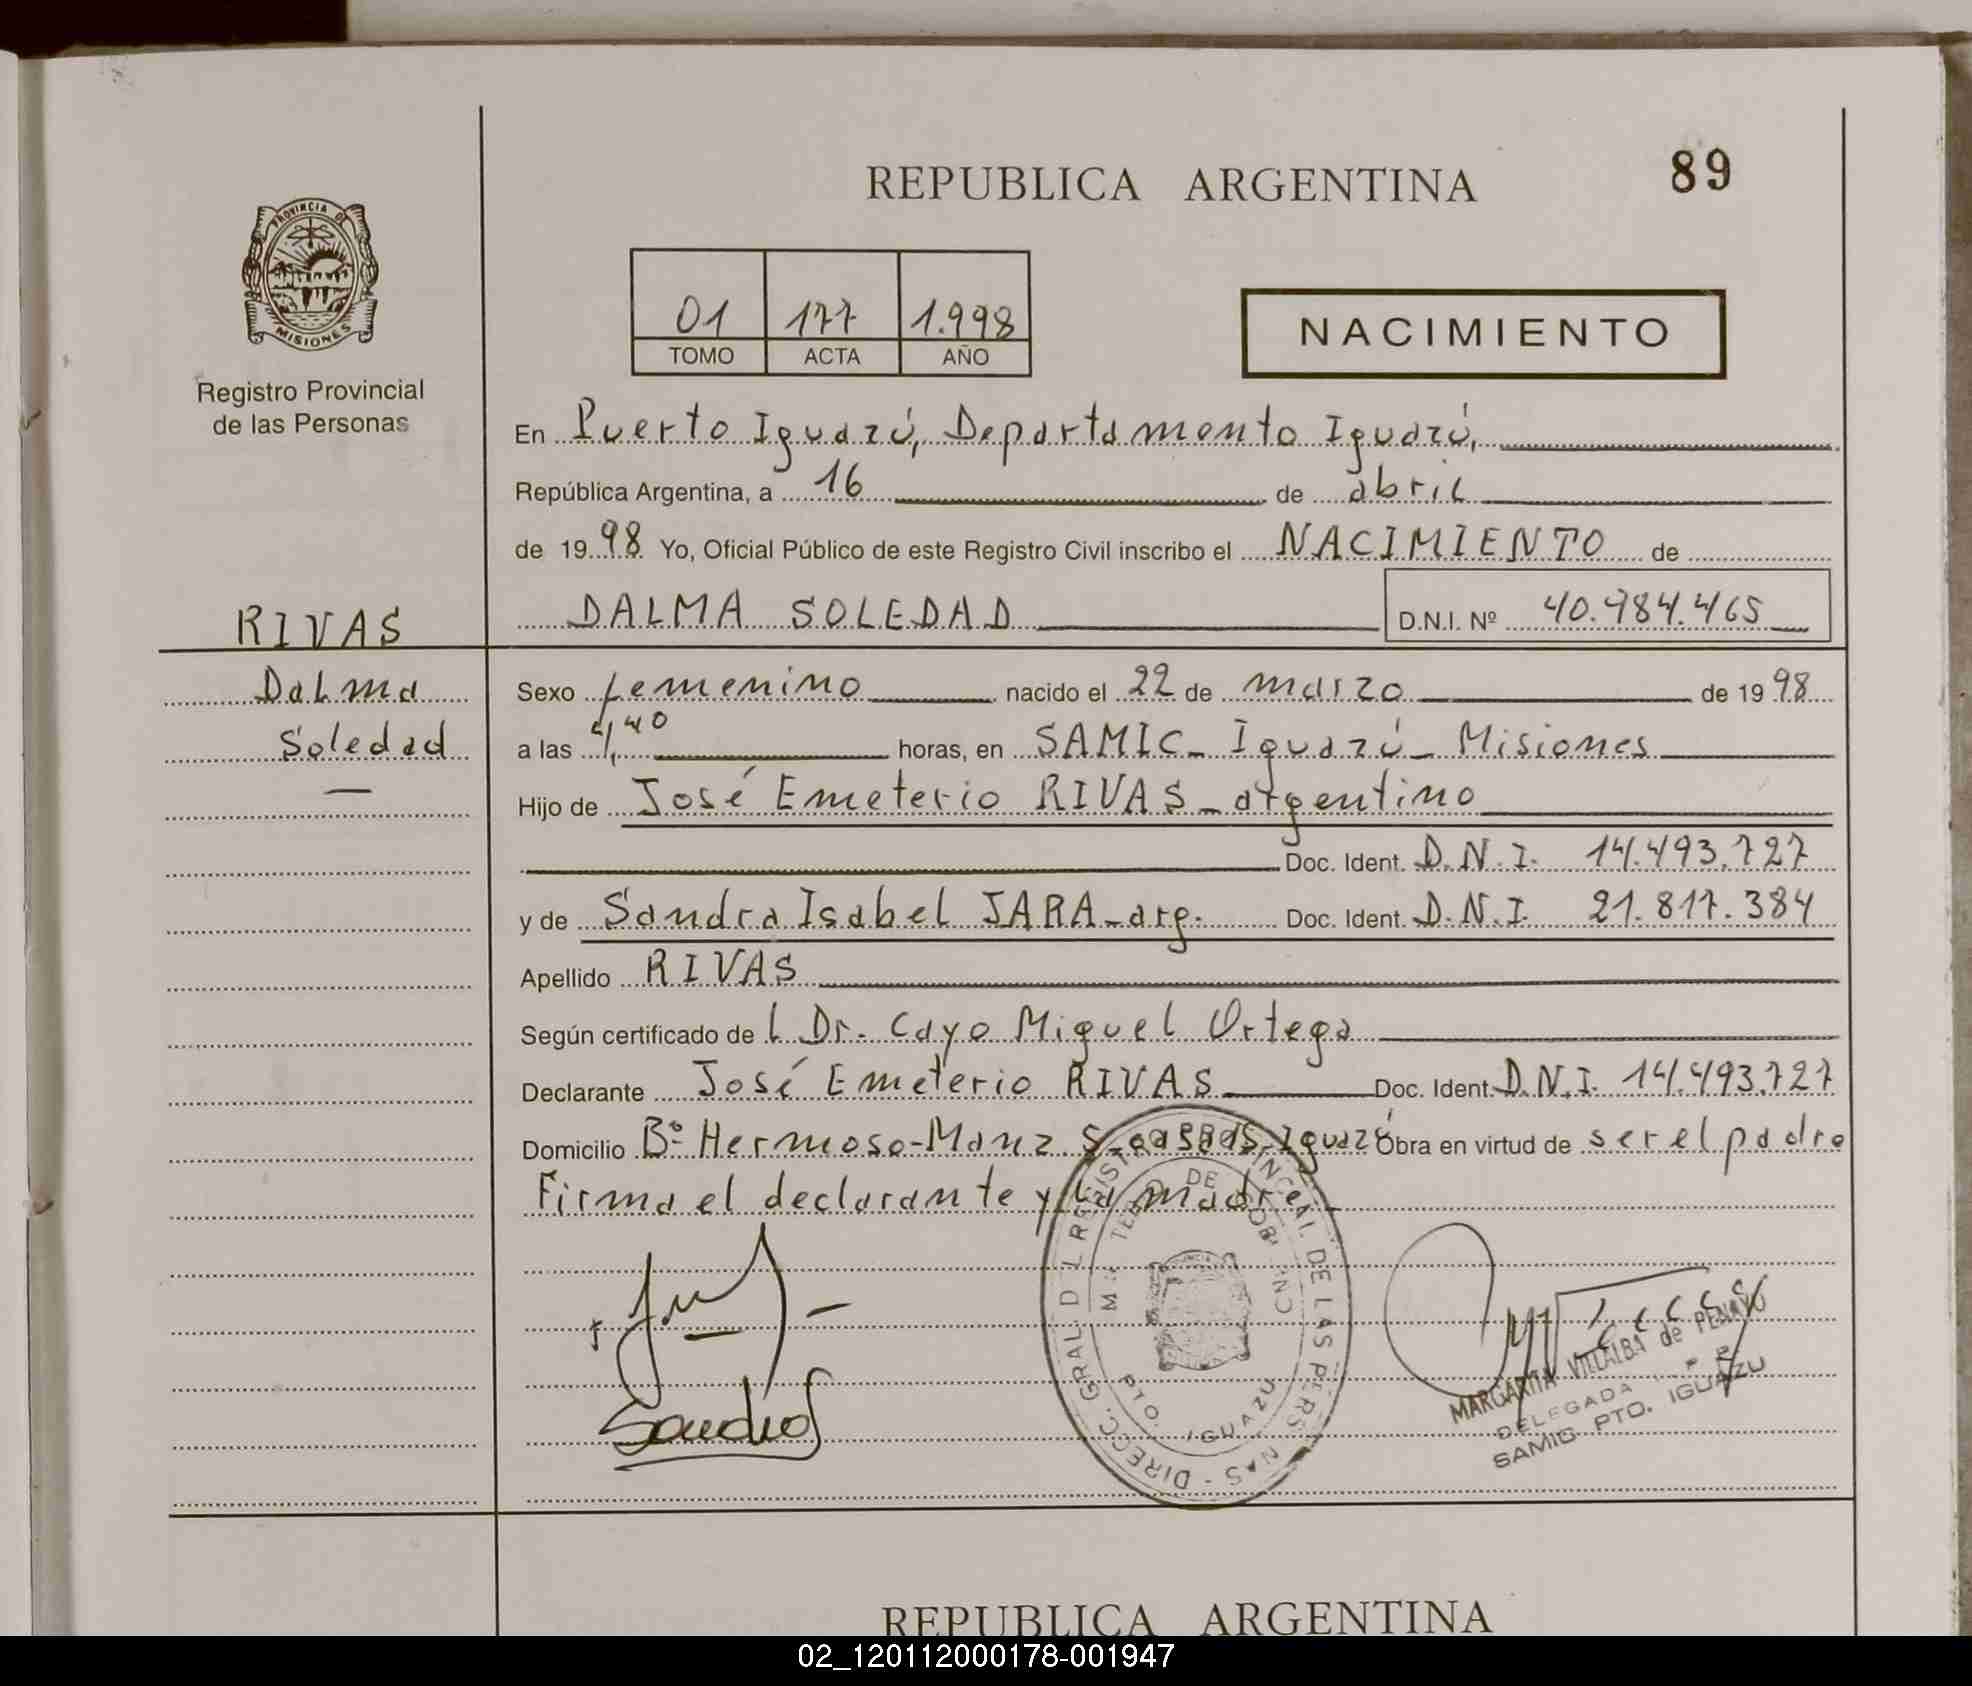 REPUBLICA ARGENTINA
89
PROVINCIA DE
MISIONES
Registro Provincial
de las Personas
01 177 1.998
TOMO ACTA AÑO
NACIMIENTO
En Puerto Iguazú, Departamento Iguazú,
República Argentina, a 16 de abril
de 1998 Yo, Oficial Público de este Registro Civil inscribo el NACIMIENTO de
DALMA SOLEDAD D.N.I. Nº 40.984.465
RIVAS
Dalma
Soledad
Sexo femenino nacido el 22 de marzo de 1998
a las 4,40 horas, en SAMIC - Iguazú - Misiones
Hijo de José Emeterio RIVAS - argentino
Doc. Ident. D.N.I. 14.493.727
y de Sandra Isabel JARA - arg. Doc. Ident. D.N.I. 21.817.384
Apellido RIVAS
Según certificado del Dr. Cayo Miguel Ortega
Declarante José Emeterio RIVAS Doc. Ident. D.N.I. 14.493.727
Domicilio Bº Hermoso - Manz. 5 - casa Iguazú Obra en virtud de ser el padre
Firma el declarante y la madre -
Sandra
DIRECC. GRAL. D L REGISTRO PROVINCIAL DE LAS PERSONAS
DE GOB.
PTO. IGUAZU
MARGARITA VILLALBA de PENAYO
DELEGADA
SAMIC PTO. IGUAZU
REPUBLICA ARGENTINA
02_120112000178-001947